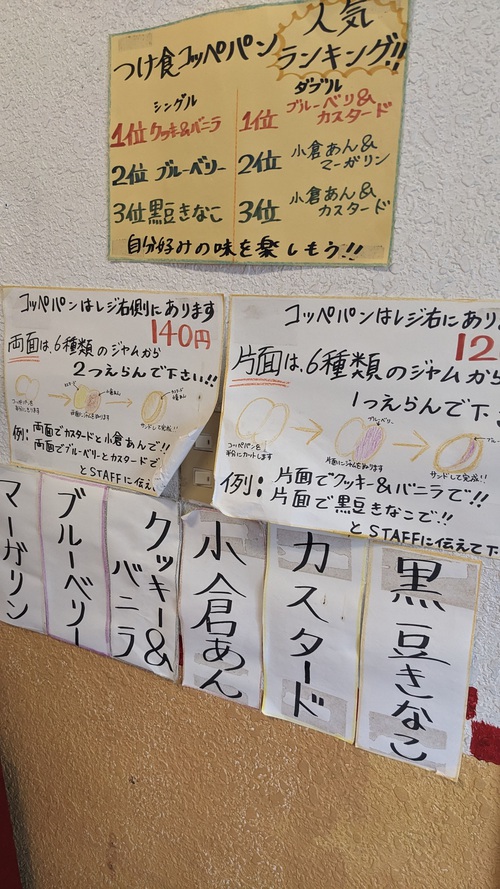 つけ食コッペパン
人気
ランキング!!
シングル
1位 クッキー&バニラ
2位 ブルーベリー
3位 黒豆きなこ
ダブル
1位 ブルーベリ&
カスタード
2位 小倉あん&
マーガリン
3位 小倉あん&
カスタード
自分好みの味を楽しもう!!
コッペパンはレジ右側にあります
140円
両面は、6種類のジャムから
2つえらんで下さい!!
サンドして完成!!
例:両面でカスタードと小倉あんで!!
両面でブルーベリーとカスタードで
とSTAFFに伝え
コッペパンはレジ右にあり
12
片面は、6種類のジャムから
1つえらんで下
コッペパンを
半分にカットします
ブルーベリー
片面にジャムをぬります
サンドして完成!!
例:片面でクッキー&バニラで!!
片面で黒豆きなこで!!
とSTAFFに伝えて下
マーガリン
ブルーベリー
クッキー&
バニラ
小倉あん
カスタード
黒豆きなこ